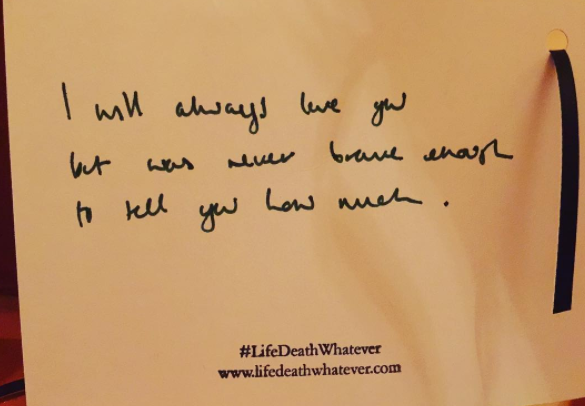 I will always love you
but was never brave enough
to tell you how much.
#LifeDeathWhatever
www.lifedeathwhatever.com